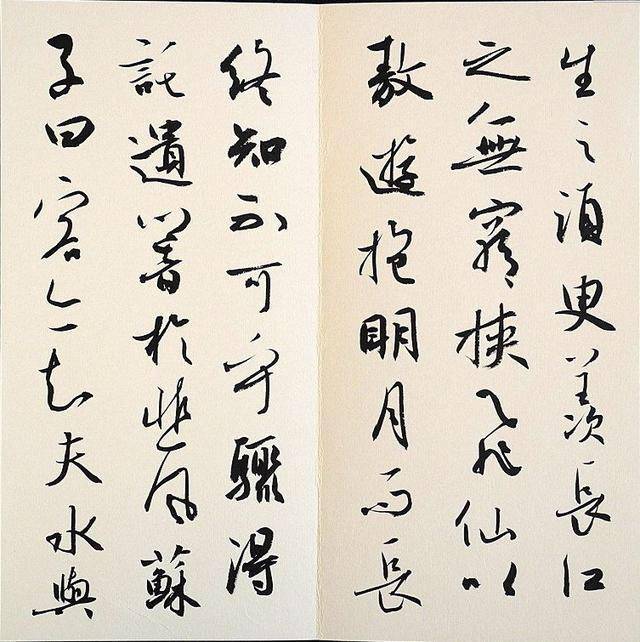 生之須臾羨長江
之無窮挾飛仙以
敖遊抱明月而長
終知不可乎驟得
託遺響於悲風蘇
子曰客亦知夫水與